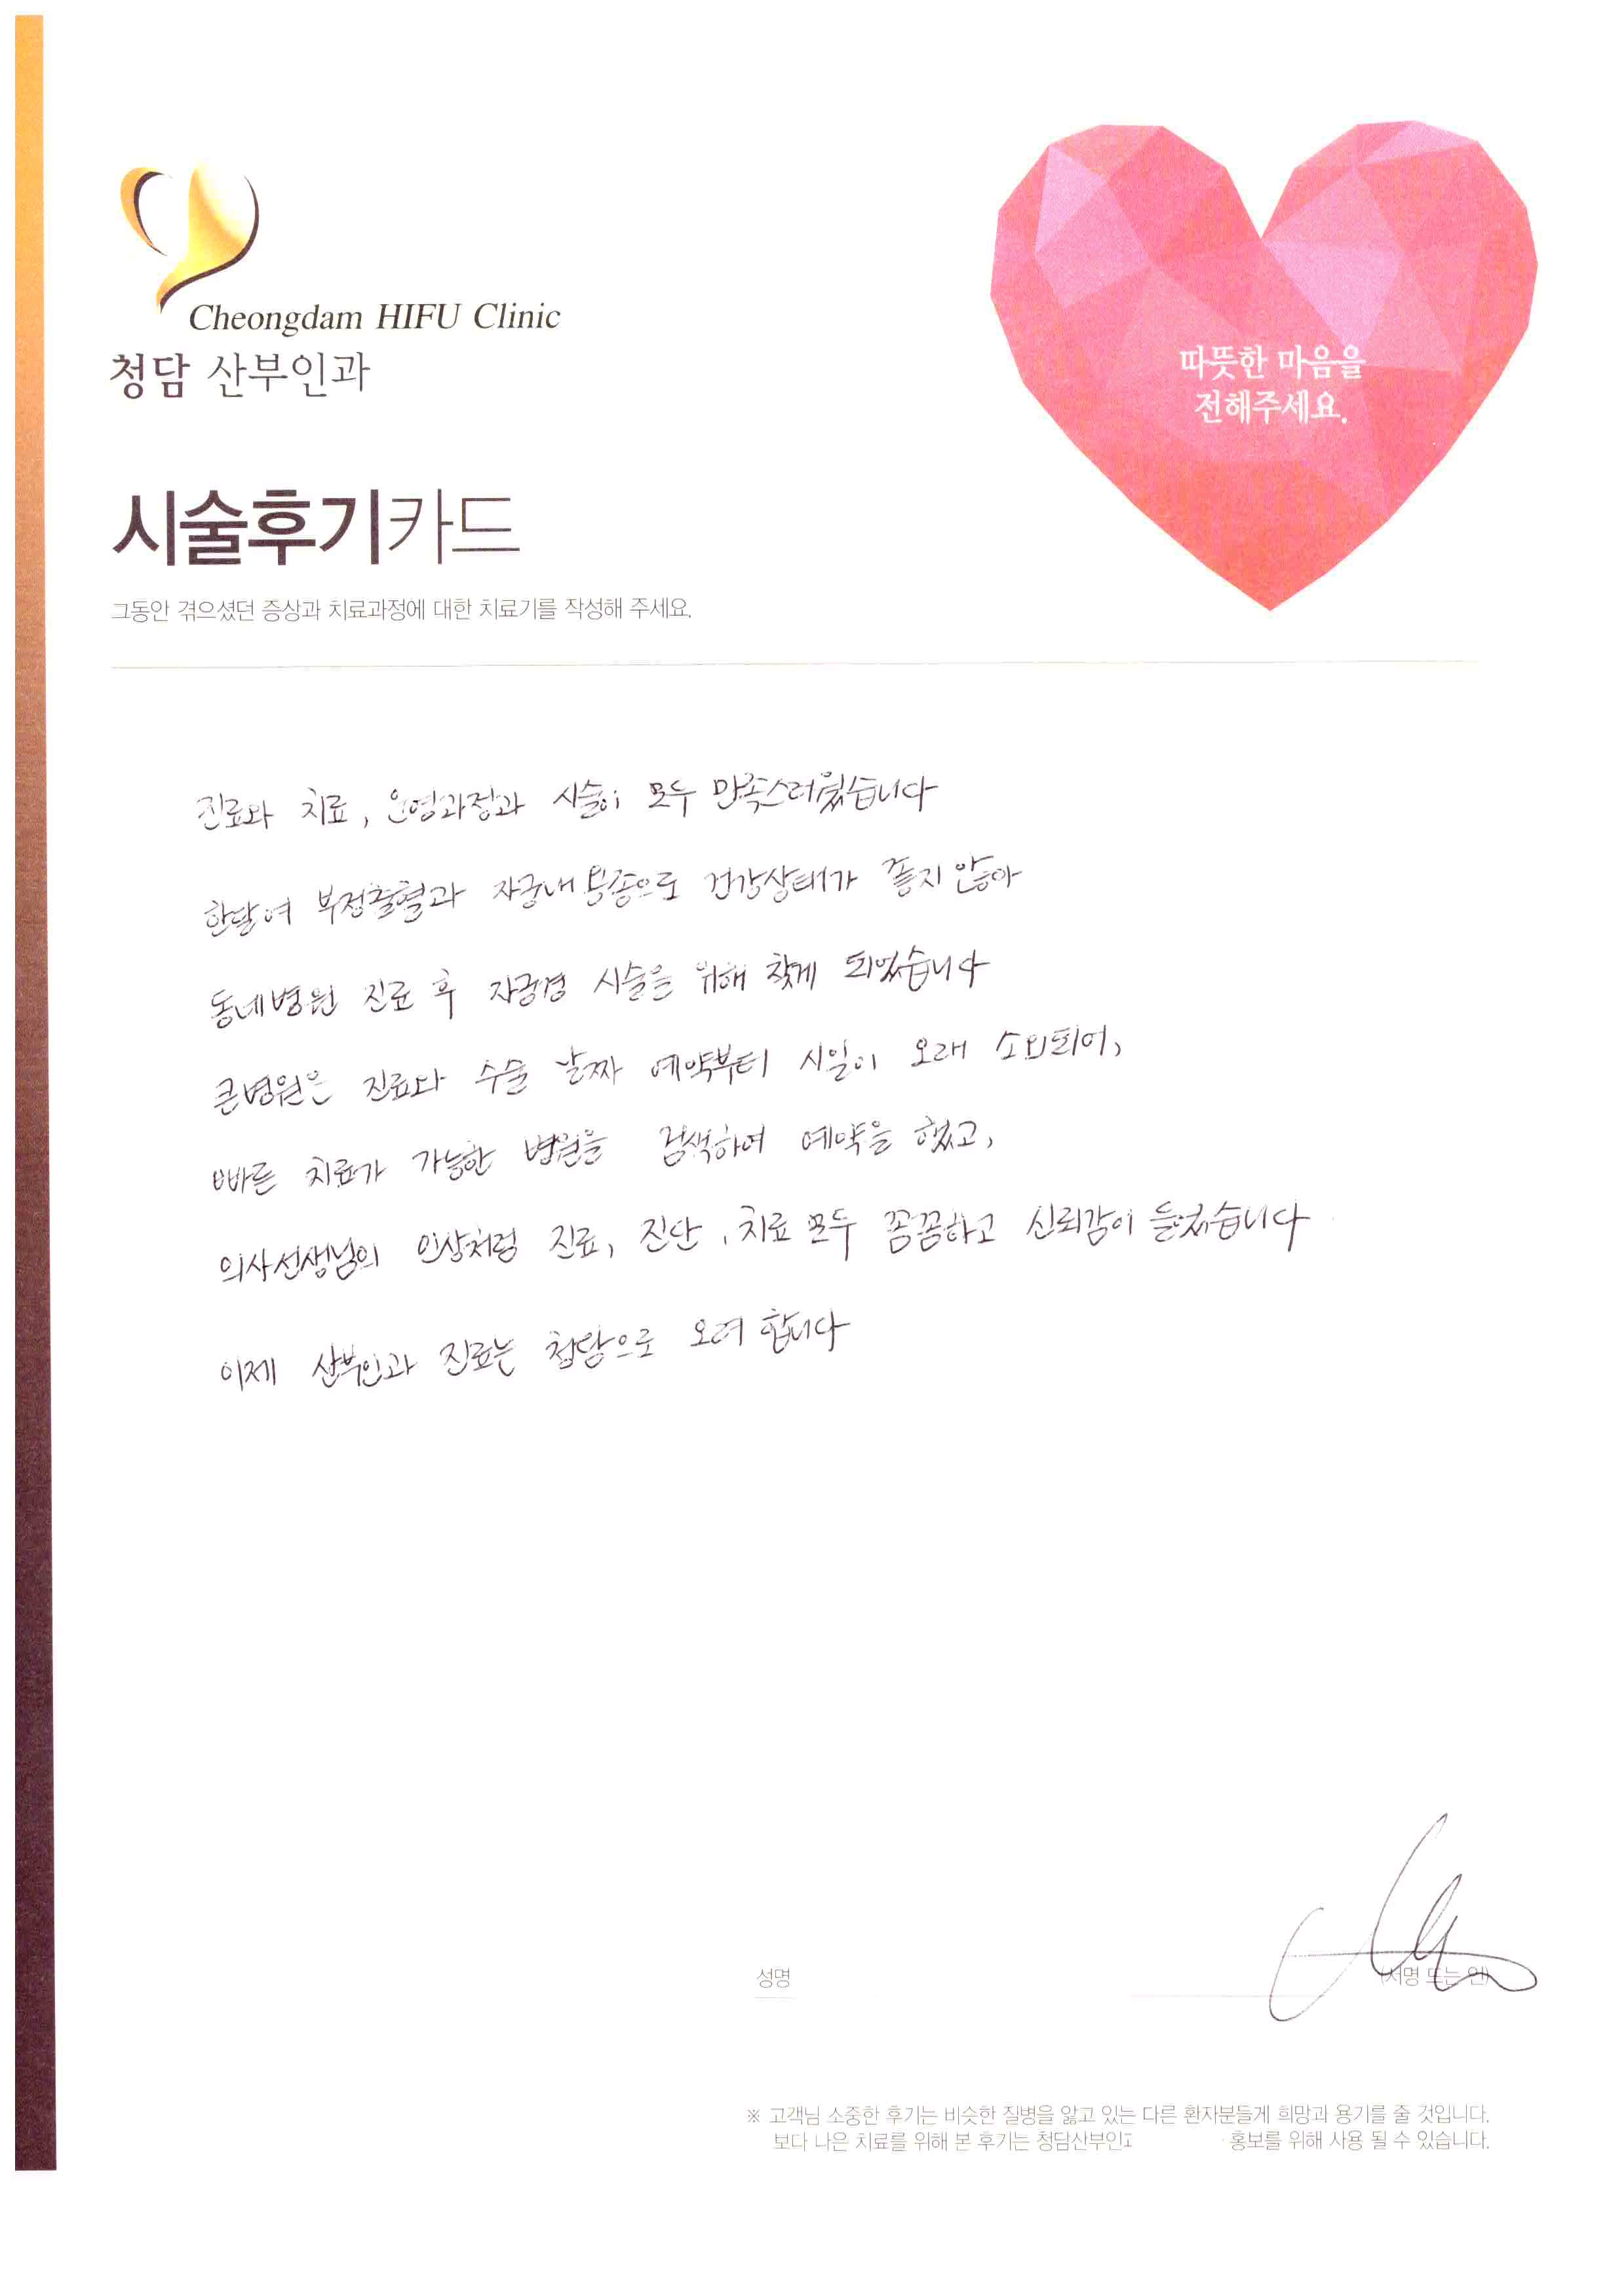 Cheongdam HIFU Clinic
청담 산부인과
따뜻한 마음을
전해주세요.
시술후기카드
그동안 겪으셨던 증상과 치료과정에 대한 치료기를 작성해 주세요.
진료와 치료, 운영과정과 시술이 모두 만족스러웠습니다
한달여 부정출혈과 자궁내 용종으로 건강상태가 좋지 않아
동네병원 진료 후 자궁경 시술을 위해 찾게 되었습니다
큰병원은 진료와 수술 날짜 예약부터 시일이 오래 소요되어,
빠른 치료가 가능한 병원을 검색하여 예약을 했고,
의사선생님의 인상처럼 진료, 진단, 치료 모두 꼼꼼하고 신뢰감이 들었습니다
이제 산부인과 진료는 청담으로 오려 합니다
성명
(서명 또는 인)
※ 고객님 소중한 후기는 비슷한 질병을 앓고 있는 다른 환자분들게 희망과 용기를 줄 것입니다.
보다 나은 치료를 위해 본 후기는 청담산부인과 홍보를 위해 사용 될 수 있습니다.